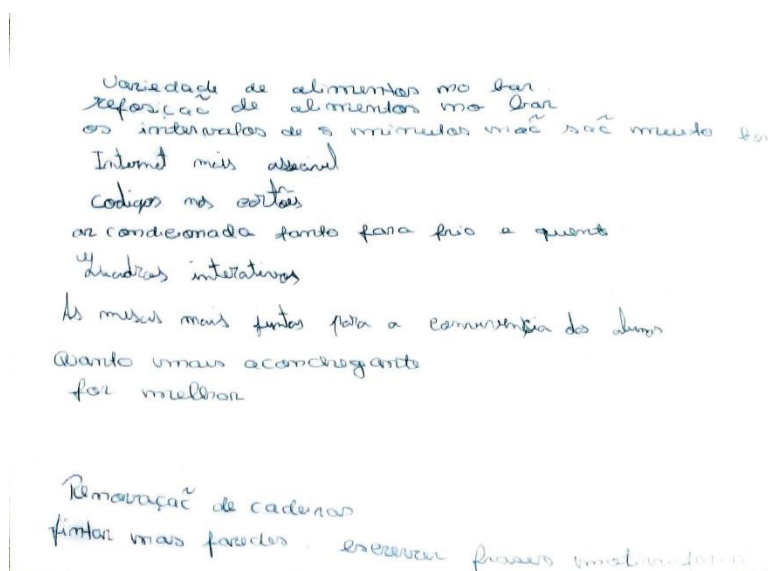 Variedade de alimentos no bar.
reposiçaõ de alimentos no bar
os intervalos de 5 minutos naõ saõ muito
Internet mais
Codigos nos cartões
ar condicionada tanto para frio e quent
Quadros interativos
As mesas mais juntas para a convivência dos alunos
Quanto mais aconchegante
for melhor
Renovaçaõ de cadeiras
pintar mas paredes. escrever frases